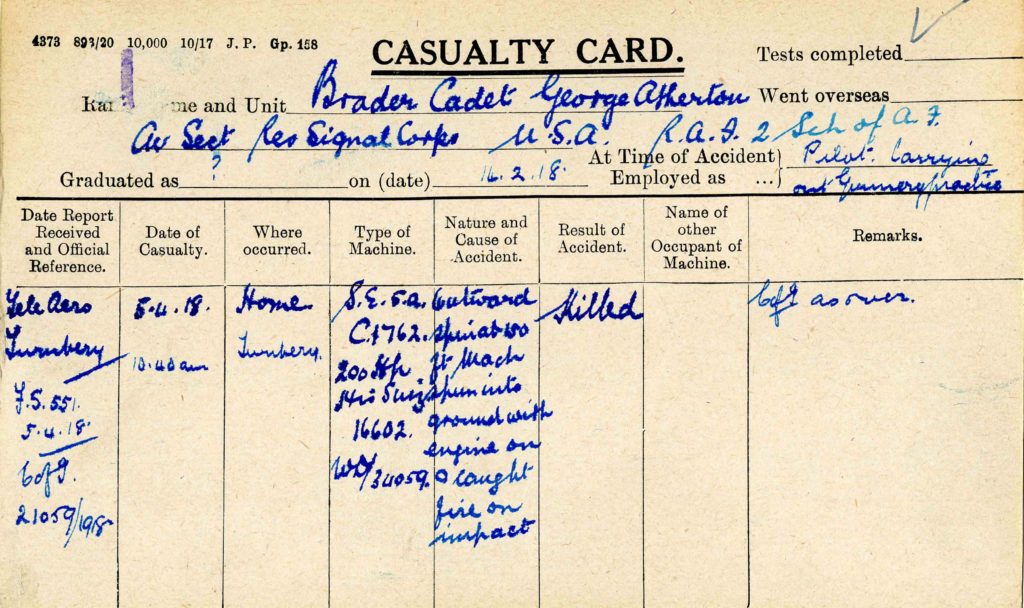 4373 893/20 10,000 10/17 J. P. Gp. 158
CASUALTY CARD.
Tests completed
me and Unit Brader Cadet George Atherton Went overseas
Av Sect Res Signal Corps U.S.A. R.A.F. 2 Sch of A.F.
Graduated as ? on (date) 14.2.18. At Time of Accident Employed as ... } Pilot. Carrying
out Gunnery practice
Date Report Received and Official Reference.
Date of Casualty.
Where occurred.
Type of Machine.
Nature and Cause of Accident.
Result of Accident.
Name of other Occupant of Machine.
Remarks.
Tele Aero
Turnbery
F.S. 551.
5.4.18.
C of I.
21059/1918
5.4.18.
10.40 am
Home
Turnbery.
S.E.5.a.
C.1762.
200 Hp
16602.
WD/34059.
outward
spin at
ft Mach
spun into
ground with
engine on
& caught
fire on
impact
Killed
C of I as over.